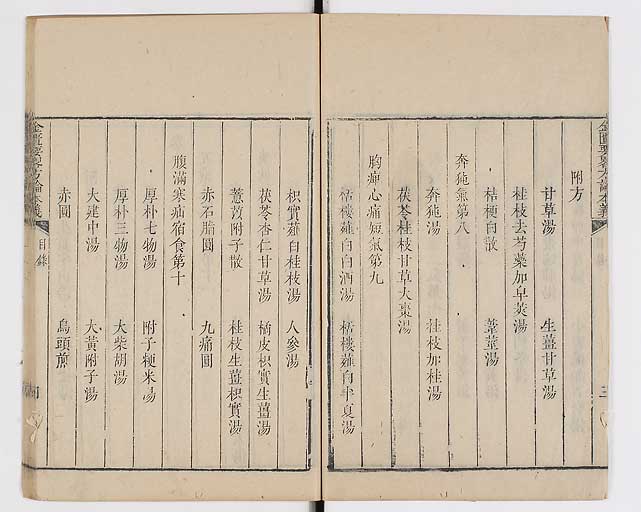 金匱要畧方論本義
三
附方
甘草湯 生薑甘草湯
桂枝去芍藥加皁莢湯
桔梗白散 葦莖湯
奔㹠氣第八
奔㹠湯 桂枝加桂湯
茯苓桂枝甘草大棗湯
胸痺心痛短氣第九
栝樓薤白白酒湯 栝樓薤白半夏湯
枳實薤白桂枝湯 人參湯
茯苓杏仁甘草湯 橘皮枳實生薑湯
薏苡附子散 桂枝生薑枳實湯
赤石脂圓 九痛圓
腹滿寒疝宿食第十
厚朴七物湯 附子粳米湯
厚朴三物湯 大柴胡湯
大建中湯 大黃附子湯
赤圓 烏頭煎
金匱要畧方論本義
目錄